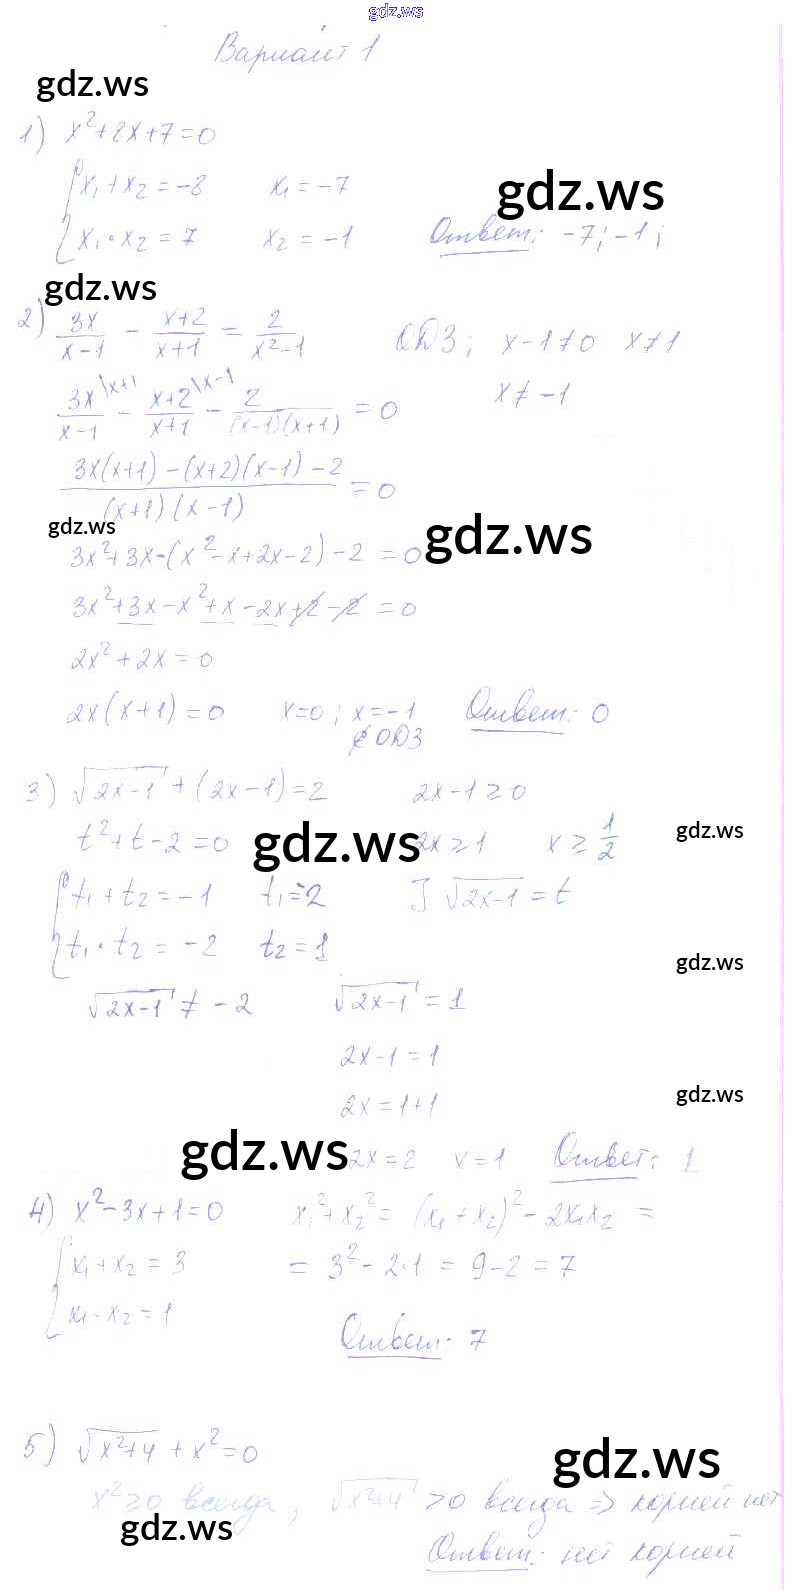 gdz.ws
Вариант 1
gdz.ws
1) x²+2x+7=0
x₁+x₂=-8 x₁=-7
gdz.ws
x₁·x₂=7 x₂=-1 Ответ: -7; -1;
gdz.ws
2) 3x/(x-1) - (x+2)/(x+1) = 2/(x²-1) ОДЗ; x-1≠0 x≠1
x≠-1
3x\x+1/(x-1) - (x+2)\x-1/(x+1) - 2/((x-1)(x+1)) =0
(3x(x+1)-(x+2)(x-1)-2)/((x+1)(x-1)) =0
gdz.ws
gdz.ws
3x²+3x-(x²-x+2x-2)-2=0
3x²+3x-x²+x-2x+2-2=0
2x²+2x=0
2x(x+1)=0 x=0; x=-1 Ответ: 0
∉ ОДЗ
3) √(2x-1)+(2x-1)=2 2x-1≥0
t²+t-2=0 gdz.ws 2x≥1 x≥1/2 gdz.ws
t₁+t₂=-1 t₁=-2 ] √(2x-1)=t
t₁·t₂=-2 t₂=1
gdz.ws
√(2x-1)≠-2 √(2x-1)=1
2x-1=1
2x=1+1
gdz.ws
gdz.ws
2x=2 x=1 Ответ: 1
4) x²-3x+1=0 x₁²+x₂²=(x₁+x₂)²-2x₁x₂=
x₁+x₂=3 =3²-2·1=9-2=7
x₁·x₂=1
Ответ: 7
5) √(x²+4)+x²=0
gdz.ws
x²≥0 всегда, √(x²+4)>0 всегда ⇒ корней нет
gdz.ws
Ответ: нет корней